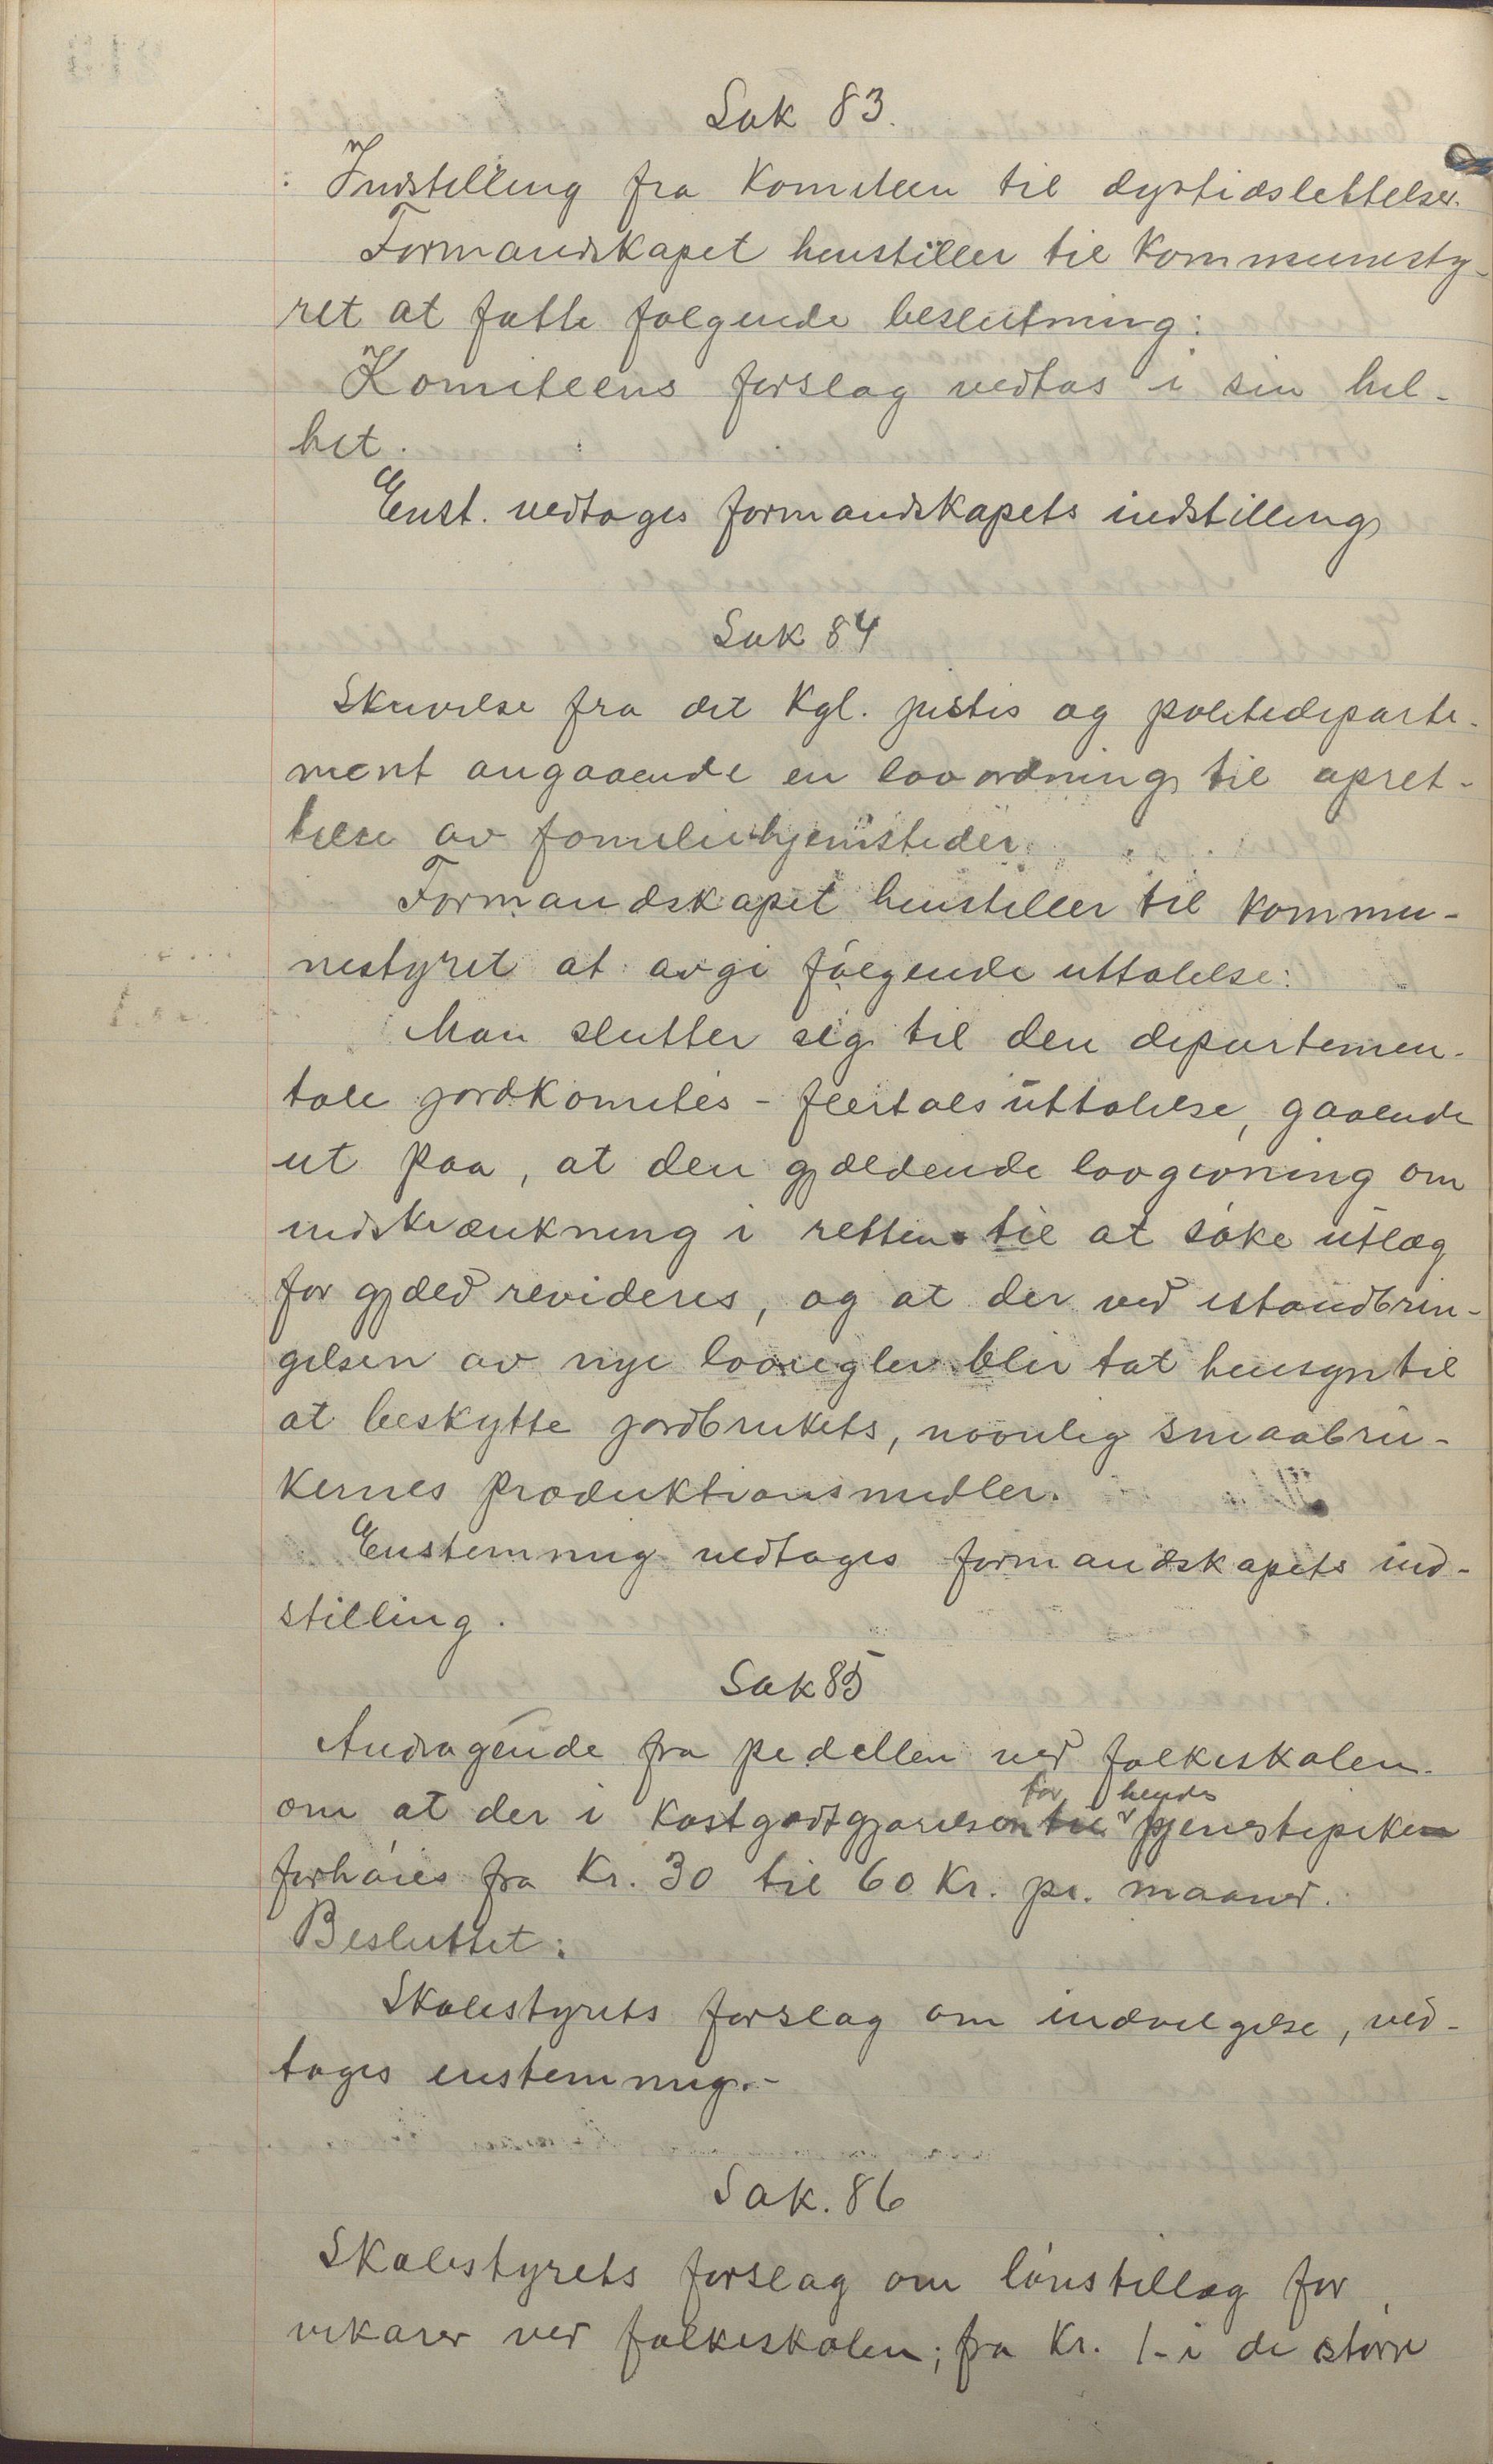 Sak 83.
Indstilling fra Komiteen til dyrtidslettelser.
Formandskapet henstiller til Kommunesty-
ret at fatte følgende beslutning:
Komiteens forslag vedtas i sin hel-
het.
Enst. vedtages formandskapets indstilling
Sak 84
Skrivelse fra det Kgl. justis og politideparte-
ment angaaende en lovordning til opret-
telse av familiehjemsteder.
Formandskapet henstiller til Kommu-
nestyret at avgi følgende uttalelse:
Man slutter sig til den departemen-
tale jordkomités - flertals uttalelse, gaaende
ut paa, at den gjældende lovgivning om
indskrænkning i retten til at søke utlæg
for gjæld revideres, og at der ved istandbrin-
gelsen av nye lovregler blir tat hensyn til
at beskytte jordbrukets, navnlig smaabru-
kernes produktionsmidler.
Enstemmig vedtages formandskapets ind-
stilling.
Sak 85
Andragende fra pedellen ved folkeskolen
om at der i Kostgodtgjørelsen for hendes tjenestepike
forhøies fra Kr. 30 til 60 Kr. pr. maaned.
Besluttet:
Skolestyrets forslag om indvilgelse, ved-
tages enstemmig.-
Sak. 86
Skolestyrets forslag om lønstillæg for
vikarer ved folkeskolen; fra Kr. 1- i de større